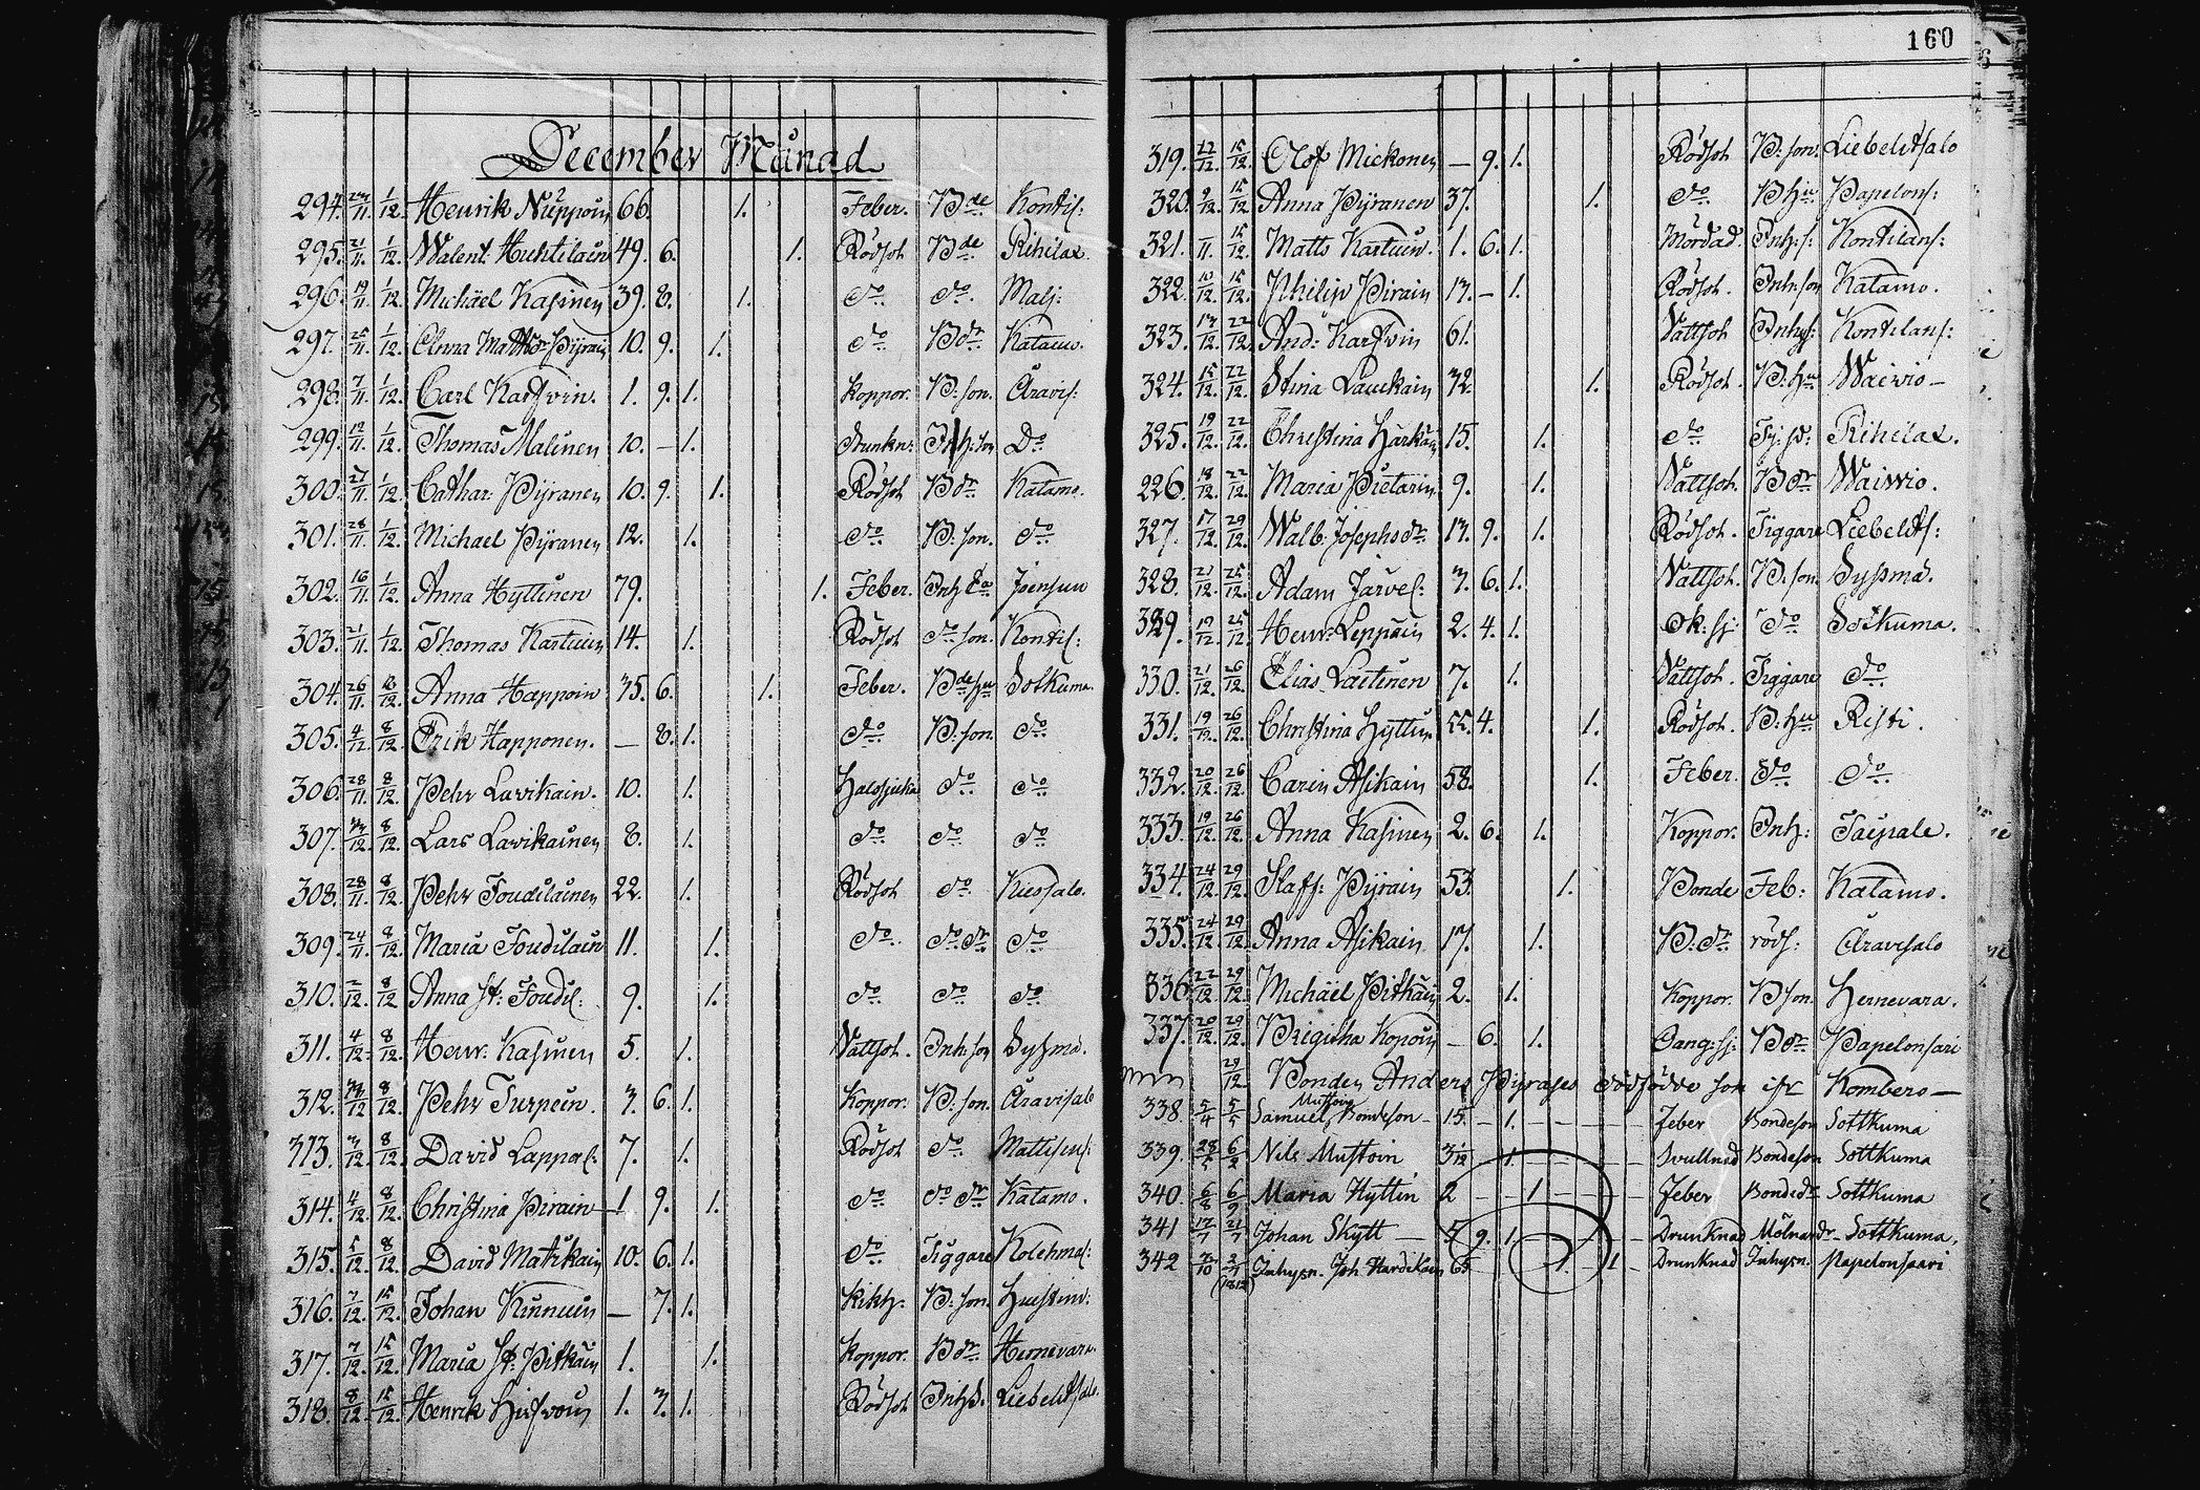 160
December Månad
294. 23/11. 1/12. Henrik Nuppoin 66. 1. Feber. Bde Kontis:
295. 21/11. 1/12. Walent: Huhtilain 49. 6. 1. Rödsot Bde Rihilax.
296. 19/11. 1/12. Michäel Kasinen 39. 8. 1. do do. Malj:
297. 25/11. 1/12. Anna Pyrain 10. 9. 1. do Bdr Katamo.
298. 7/11. 1/12. Carl Karhvin. 1. 9. 1. Koppor. B:son. Aravis:
299. 12/11. 1/12. Thomas Malinen 10. – 1. Drunkn: Inh:son Do
300. 27/11. 1/12. Cathar: Pyranen 10. 9. 1. Rödsot Bdr Katamo.
301. 28/11. 1/12. Michael Pyranen 12. 1. do B:son. do
302. 16/11. 1/12. Anna Hyttinen 79. 1. Feber. Joensuu
303. 21/11. 1/12. Thomas Kartuin 14. 1. Rödsot do son. Kontis:
304. 26/11. 12. Anna Happoin 35. 6. 1. Feber. Bdehu Sotkuma.
305. 4/12 8/12. Erik Happonen. — 8. 1. do B:son do
306. 28/11. 8/12. Pehr Lavikain. 10. 1. Halssjuka do do
307. 12. 8/12. Lars Lavikainen 8. 1. do do do
308. 28/11. 8/12. Pehr Toudilainen 22. 1. Rödsot do Kuosalo.
309. 24/11. 8/12. Maria Toudilain 11. 1. do do dr do
310. 2/12. 8/12 Anna St: Toudil: 9. 1. do do do
311. 4/12. 8/12. Henr: Kasinen 5. 1. Nattsot. Inh:son Sysmä.
312. 12 8/12. Pehr Turpein. 3. 6. 1. Koppor. B:son. Aravisalo
313. 3/12. 8/12. David Lappal: 7. 1. Rödsot do Mattisens:
314. 4/12. 8/12. Christina Pirain 1. 9. 1. do do dr Katamo.
315. 5/12. 8/12. David Matikain 10. 6. 1. do Tiggare Kolehmas:
316. 7/12. 15/12. Johan Kinnuin — 7. 1. Kikh: B:son.
317. 7/12. 15/12. Maria St: Pitkain 1. 1. Koppor. Bdr Hernevara.
318. 8/12. 15/12. Henrik Hirvoin 1. 3. 1. Rödsot Inhs. Liebelitsalo.
319. 12/12. 15/12. Olof Mickonen — 9. 1. Rödsot B:son. Liebelitsalo
320. 9/12. 15/12 Anna Pyranen 37. 1. do Bhu Papelons:
321. 11. 15/12. Matts Kartuin. 1. 6. 1. Mördad. Inh:s: Kontilans:
322. 10/12. 15/12. Philip Pirain 13. – 1. Rödsot. Inh:son Katamo.
323. 13/12. 22/12. And: Karhvin 61. Nattsot Inhys: Kontilans:
324. 15/12. 22/12. Stina Lauckain 32. 1. Rödsot. B:hu Waivio –
325. 19/12. 22/12. Christina Härkäin 15. 1. do Rihilax.
226. 18/12. 22/12. Maria Pietarin 9. 1. Nattsot. Bdr Waivio.
327. 17/12. 29/12. Walb: Josephsdr 13. 9. 1. Rödsot. Tiggare Liebelits:
328. 21/12. 25/12. Adam Järvel: 3. 6. 1. Nattsot. B.son Sysmä.
329. 19/12. 25/12. Henr: Leppäin 2. 4. 1. Ok:sj: do Sotkuma.
330. 21/12. 26/12. Elias Laitinen 7. 1. Nattsot. Tiggare do
331. 19/12. 26/12. Christina Hyttin 55. 4. 1. Rödsot. B:hu Risti.
332. 20/12. 26/12. Carin Asikain 58. 1. Feber. do do
333. 19/12. 26/12. Anna Kasinen 2. 6. 1. Koppor. Inh: Taipale.
334. 24/12. 29/12. Staff: Pyrain 53. 1. Bonde Feb: Katamo.
335. 24/12. 29/12. Anna Asikain 17. 1. B.dr röds: Aravisalo
336. 22/12. 29/12. Michäel Pitkäin 2. 1. Koppor. Bson Hernevara.
337. 20/12. 29/12. Brigitha Kopoin – 6. 1. Bdr Papelonsari
29/12 Bonden Anders Pyräses dödfödde son ifr Kombero –
338. 5/4 5/5 Samuel Mustoin Bondeson – 15. – 1. – – – – Feber Bondeson Sottkuma
339. 28/5 6/2 Nils Mustoin 3/12 – 1 – – – – Svullnad Bondeson Sottkuma
340. 6/8 6/9 Maria Hyttin 2 – – 1 – – – Feber Bondedr Sottkuma
341 17/7 21/7 Johan Skytt — 5 9. 1. – Drunknad Mölnaredr – Sottkuma,
342 7/10 (1812) Inhysn. Joh Hardikain 65 1 – Drunknad Inhysn. Papelonsaari